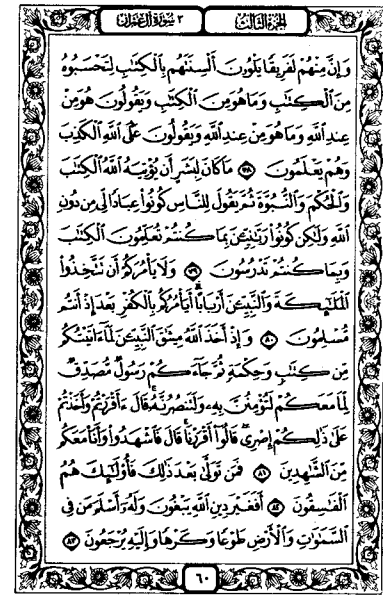 الجزء الثالث ٣ سورة آل عمران
وَإِنَّ مِنْهُمْ لَفَرِيقًا يَلْوُۥنَ أَلْسِنَتَهُم بِالْكِتَٰبِ لِتَحْسَبُوهُ
مِنَ الْكِتَٰبِ وَمَا هُوَ مِنَ الْكِتَٰبِ وَيَقُولُونَ هُوَ مِنْ
عِندِ اللَّهِ وَمَا هُوَ مِنْ عِندِ اللَّهِ وَيَقُولُونَ عَلَى اللَّهِ الْكَذِبَ
وَهُمْ يَعْلَمُونَ ٧٨ مَا كَانَ لِبَشَرٍ أَن يُؤْتِيَهُ اللَّهُ الْكِتَٰبَ
وَالْحُكْمَ وَالنُّبُوَّةَ ثُمَّ يَقُولَ لِلنَّاسِ كُونُوا عِبَادًا لِّي مِن دُونِ
اللَّهِ وَلَٰكِن كُونُوا رَبَّٰنِيِّۦنَ بِمَا كُنتُمْ تُعَلِّمُونَ الْكِتَٰبَ
وَبِمَا كُنتُمْ تَدْرُسُونَ ٧٩ وَلَا يَأْمُرَكُمْ أَن تَتَّخِذُوا
الْمَلَٰٓئِكَةَ وَالنَّبِيِّۦنَ أَرْبَابًا أَيَأْمُرُكُم بِالْكُفْرِ بَعْدَ إِذْ أَنتُم
مُّسْلِمُونَ ٨٠ وَإِذْ أَخَذَ اللَّهُ مِيثَٰقَ النَّبِيِّۦنَ لَمَا ءَاتَيْتُكُم
مِّن كِتَٰبٍ وَحِكْمَةٍ ثُمَّ جَآءَكُمْ رَسُولٌ مُّصَدِّقٌ
لِّمَا مَعَكُمْ لَتُؤْمِنُنَّ بِهِۦ وَلَتَنصُرُنَّهُۥ قَالَ ءَأَقْرَرْتُمْ وَأَخَذْتُمْ
عَلَىٰ ذَٰلِكُمْ إِصْرِي قَالُوٓا أَقْرَرْنَا قَالَ فَاشْهَدُوا وَأَنَا مَعَكُم
مِّنَ الشَّٰهِدِينَ ٨١ فَمَن تَوَلَّىٰ بَعْدَ ذَٰلِكَ فَأُولَٰٓئِكَ هُمُ
الْفَٰسِقُونَ ٨٢ أَفَغَيْرَ دِينِ اللَّهِ يَبْغُونَ وَلَهُۥٓ أَسْلَمَ مَن فِي
السَّمَٰوَٰتِ وَالْأَرْضِ طَوْعًا وَكَرْهًا وَإِلَيْهِ يُرْجَعُونَ ٨٣
٦٠